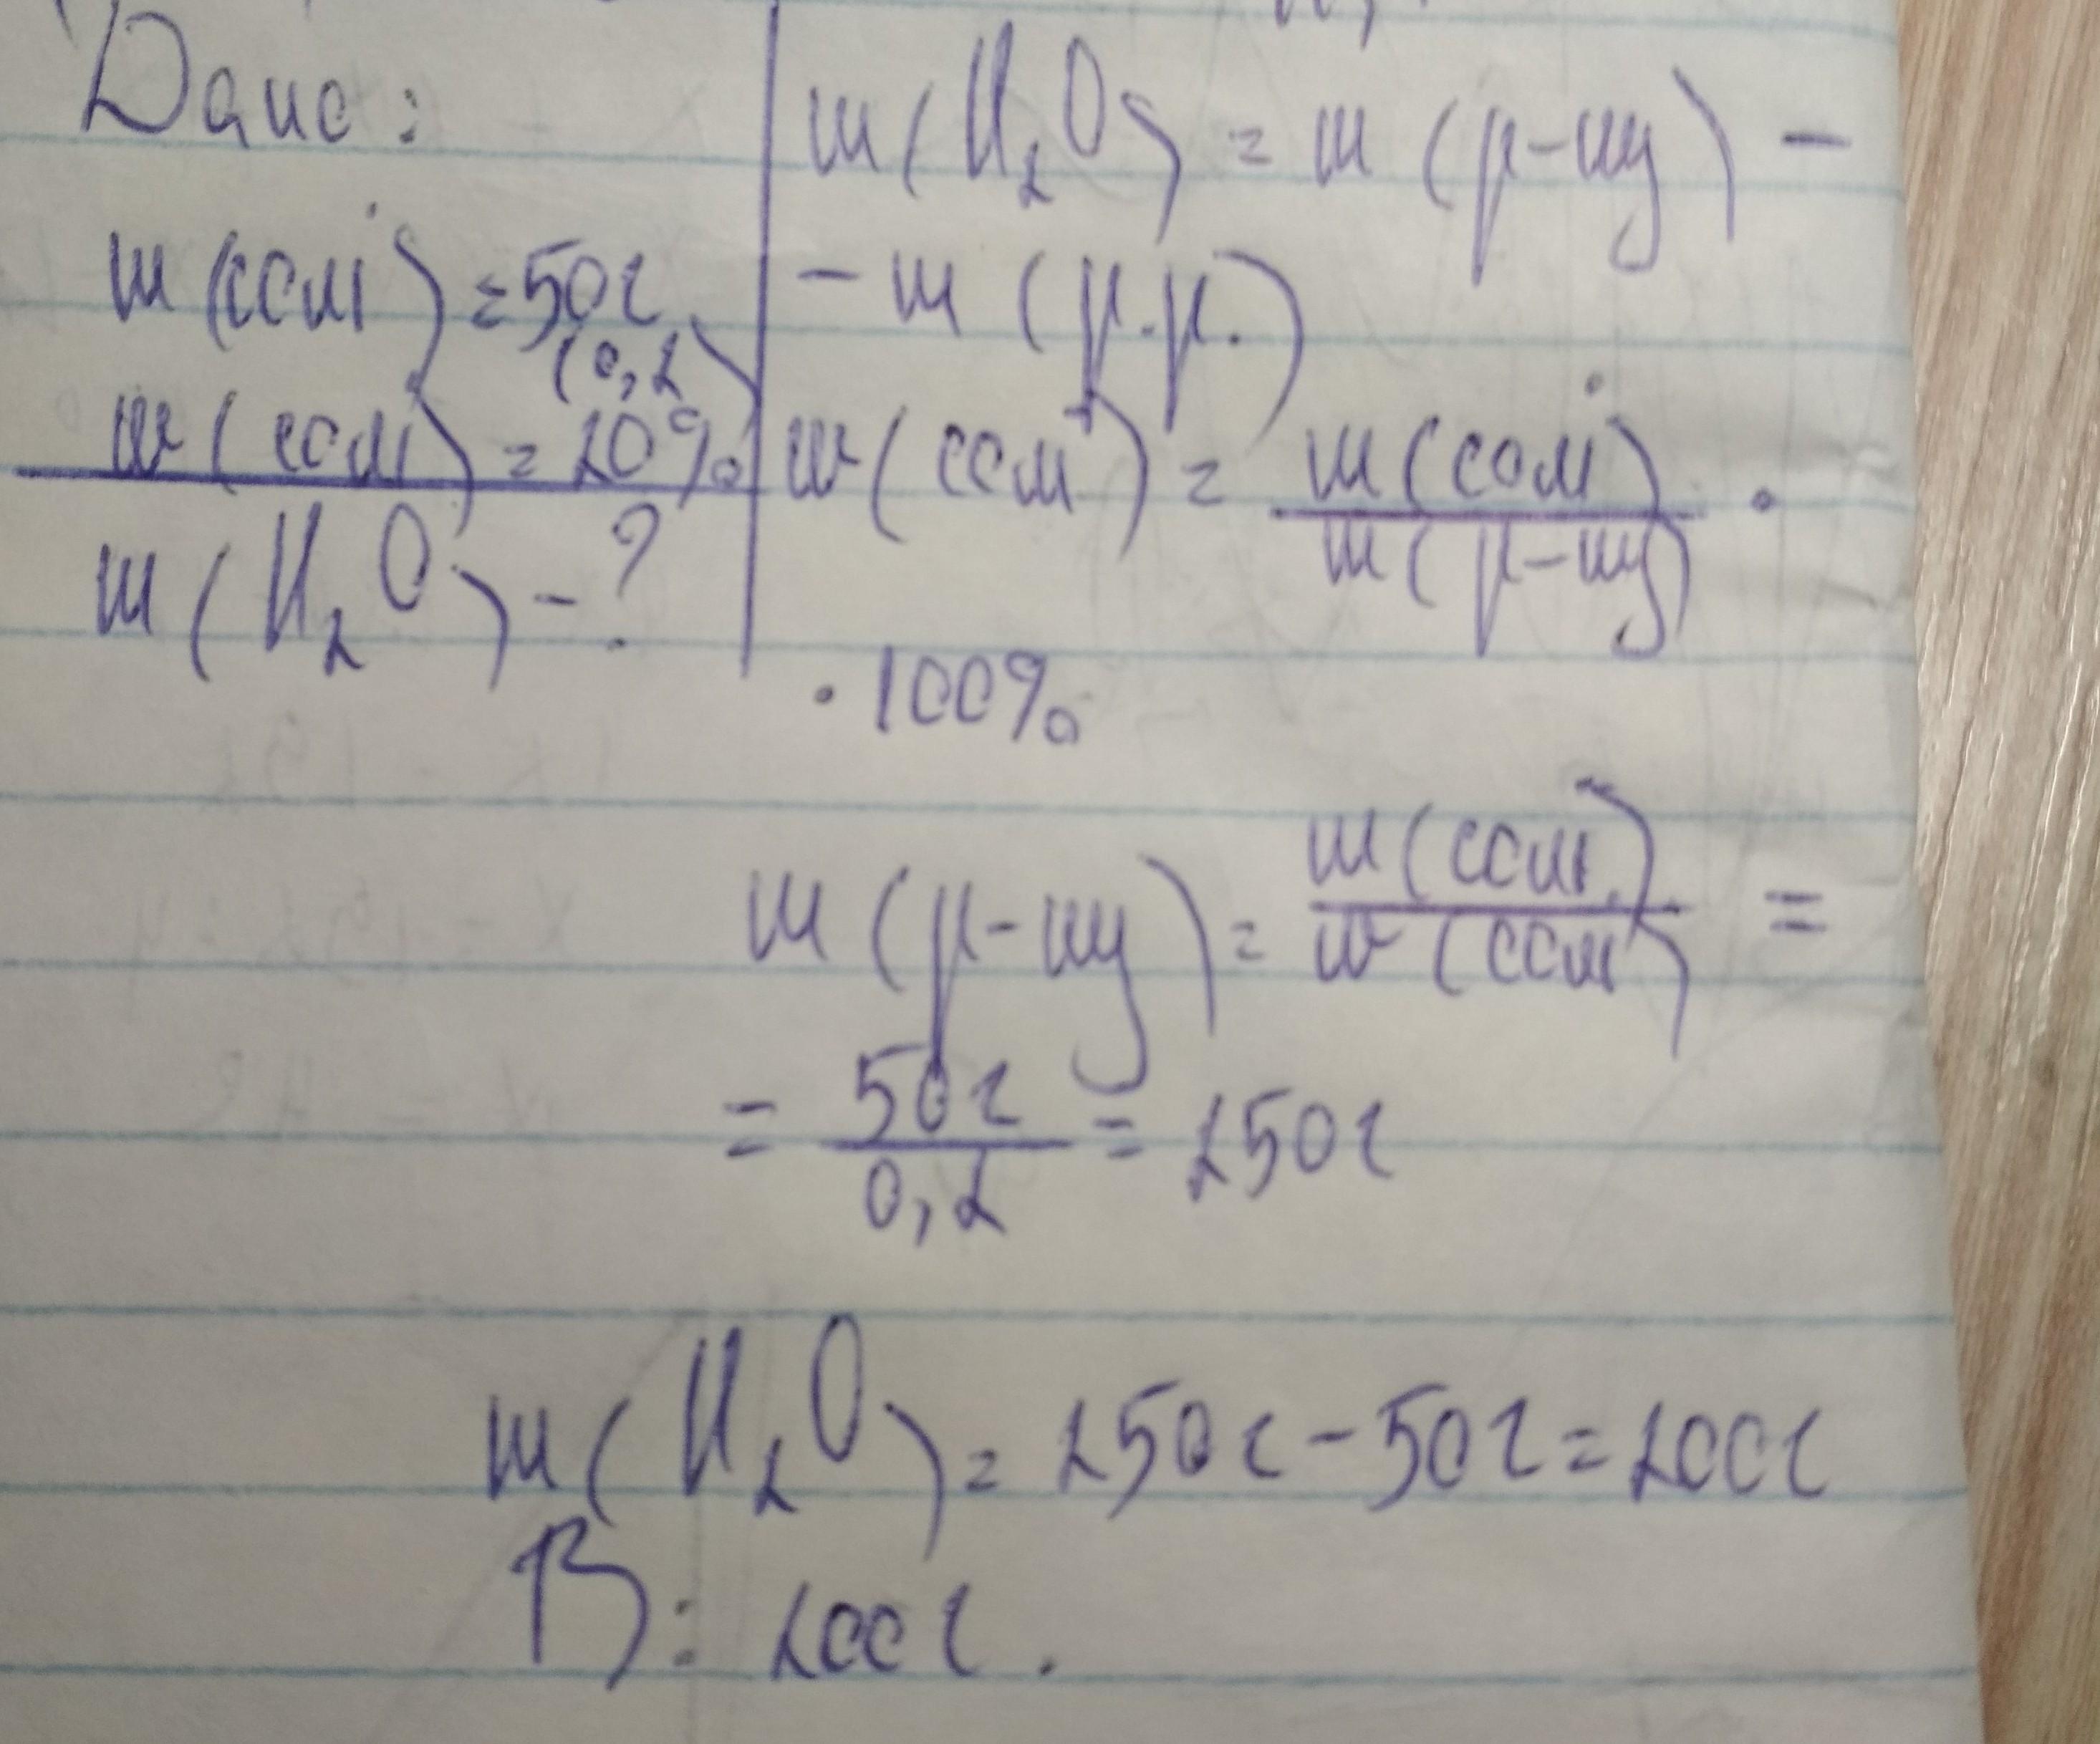 Дано:
m(солі) = 50г
(0,2)
w(солі) = 20%
m(H₂O) - ?
m(H₂O) = m(р-ну) -
- m(р.р.)
w(солі) = m(солі) / m(р-ну) ·
· 100%
m(р-ну) = m(солі) / w(солі) =
= 50г / 0,2 = 250г
m(H₂O) = 250г - 50г = 200г
В: 200г.